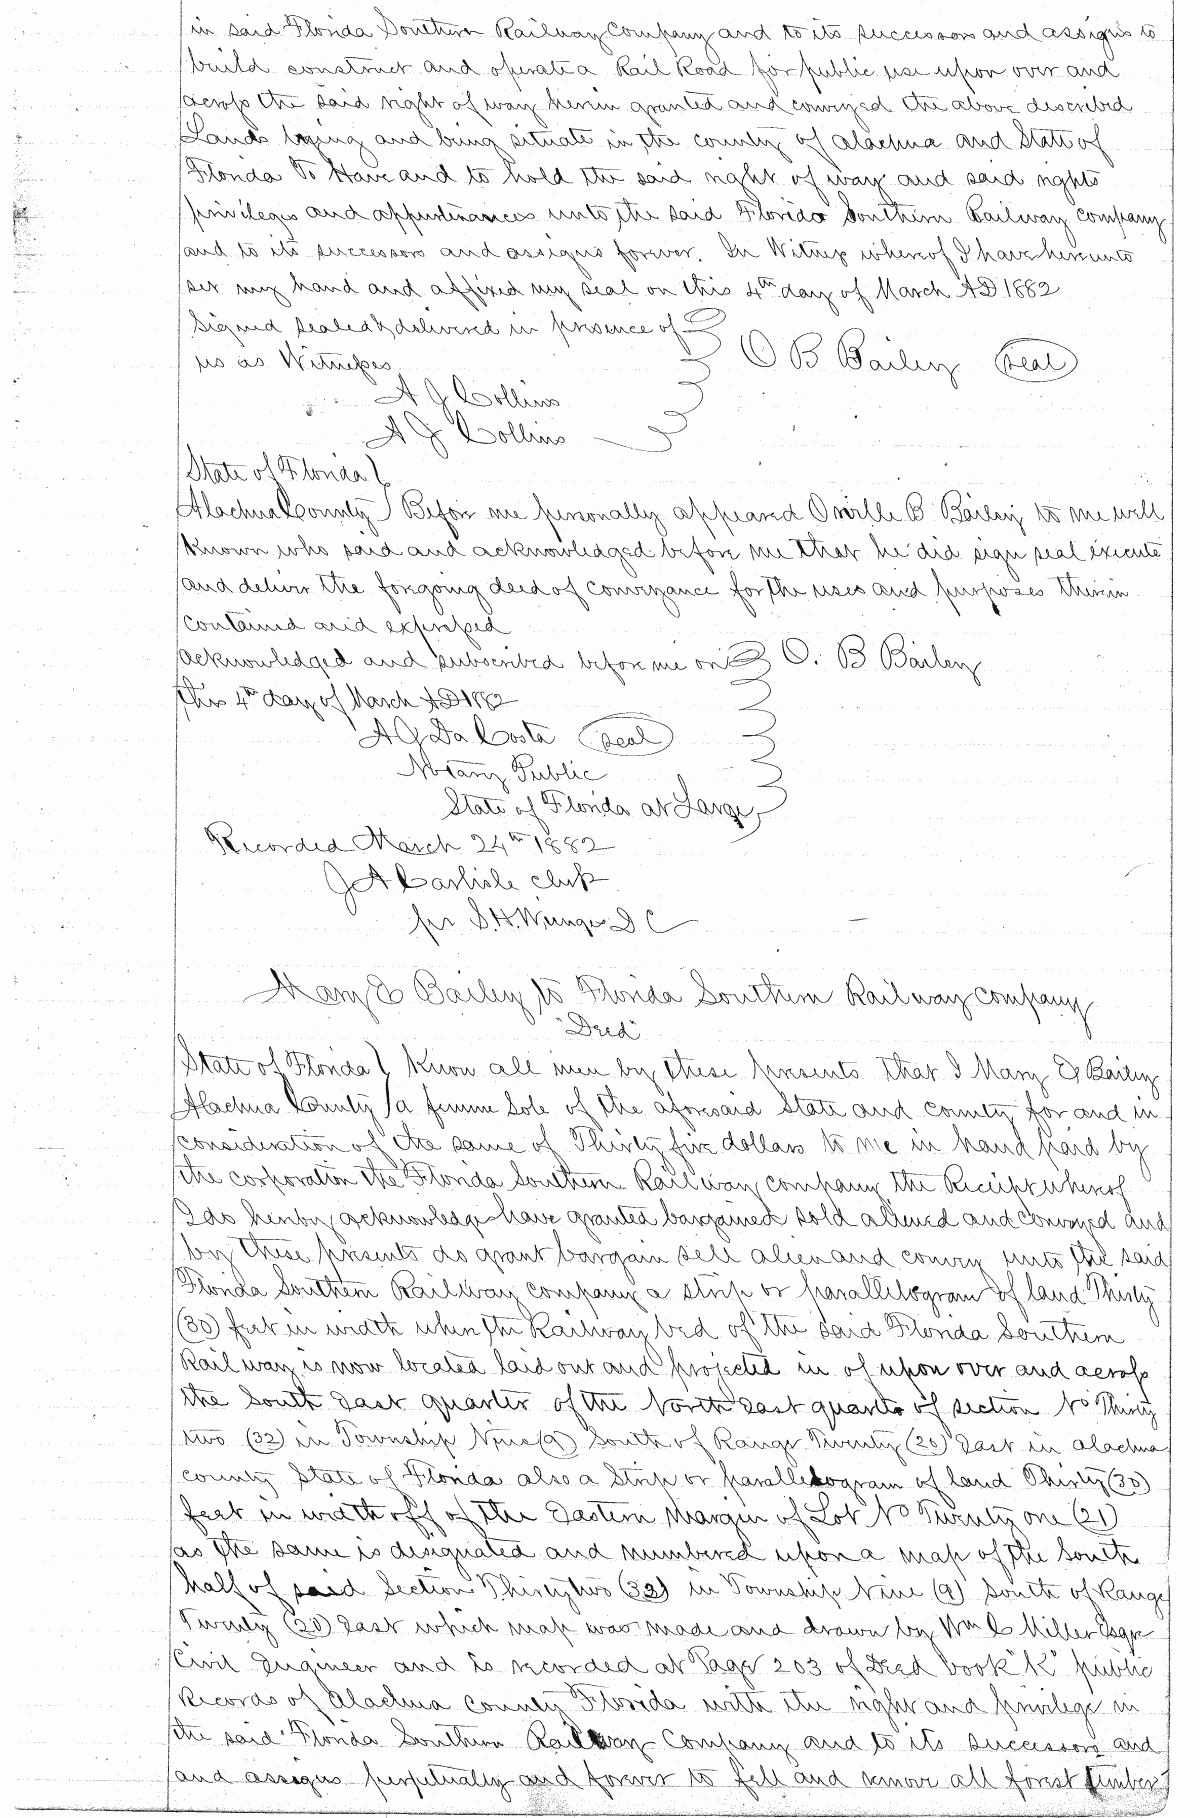 in said Florida Southern Railway Company and to its successors and assigns to
build construct and operate a Rail Road for public use upon over and
across the said right of way herein granted and conveyed the above described
Lands lying and being situate in the county of Alachua and State of
Florida To Have and to hold the said right of way and said rights
privileges and appurtenances unto the said Florida Southern Railway company
and to its successors and assigns forever. In Witness whereof I have hereunto
set my hand and affixed my seal on this 4th day of March AD 1882
Signed sealed & delivered in presence of
us as Witnesses
O B Bailey (seal)
A J Collins
A J Collins
State of Florida
Alachua County Before me personally appeared Orville B Bailey to me well
known who said and acknowledged before me that he did sign seal execute
and deliver the foregoing deed of conveyance for the uses and purposes therein
contained and expressed
acknowledged and subscribed before me on O. B Bailey
this 4th day of March AD 1882
A J Da Costa (seal)
Notary Public
State of Florida at Large
Recorded March 24th 1882
J A Carlisle clerk
per S. H. D C
Mary E Bailey to Florida Southern Railway company
"Deed"
State of Florida Know all men by these presents that I Mary E Bailey
Alachua County a femme Sole of the aforesaid State and county for and in
consideration of the same of Thirty five dollars to me in hand paid by
the corporation the Florida Southern Railway company the Receipt whereof
I do hereby acknowledge have granted bargained sold aliened and conveyed and
by these presents do grant bargain sell alien and convey unto the said
Florida Southern Railway company a strip or parallelogram of land Thirty
(30) feet in width when the Railway bed of the said Florida Southern
Railway is now located laid out and projected in of upon over and across
the South East quarter of the North East quarter of section No Thirty
two (32) in Township Nine (9) South of Range Twenty (20) East in Alachua
county State of Florida also a Strip or parallelogram of land Thirty (30)
feet in width off of the Eastern Margin of Lot No Twenty one (21)
as the same is designated and numbered upon a map of the South
half of said Section Thirty two (32) in Township Nine (9) South of Range
Twenty (20) East which map was made and drawn by Wm C Miller Esqr
Civil Engineer and is recorded at Page 203 of Deed book "K" public
Records of Alachua County Florida with the right and privilege in
the said Florida Southern Railway Company and to its successors and
and assigns perpetually and forever to fell and remove all forest timber